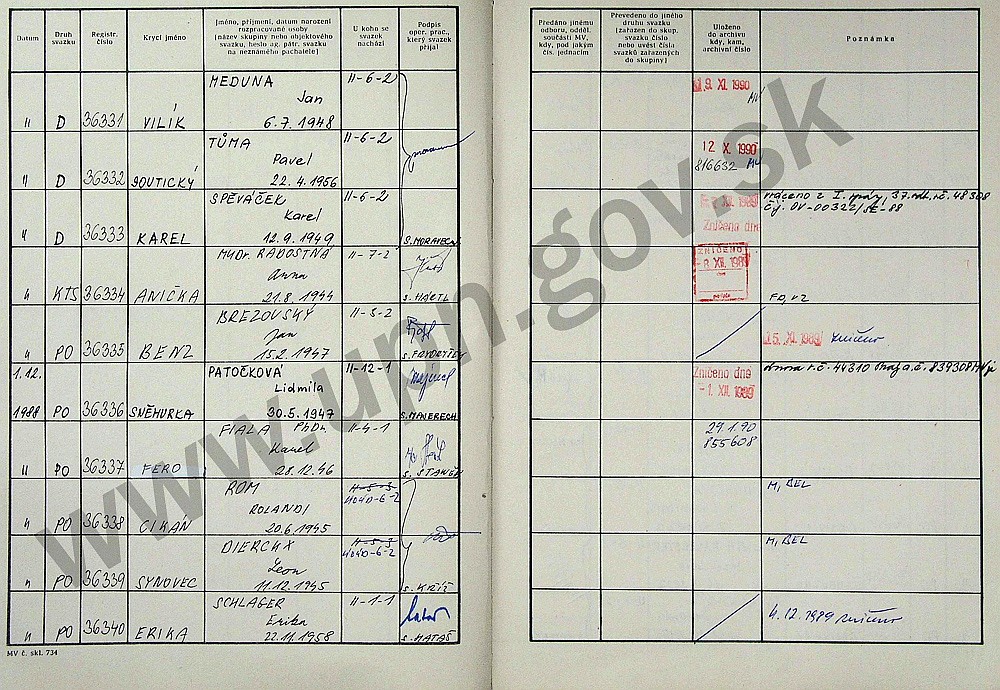 Datum
Druh
svazku
Registr.
číslo
Krycí jméno
Jméno, příjmení, datum narození
rozpracované osoby
(název skupiny nebo objektového
svazku, heslo ag. pátr. svazku
na neznámého pachatele)
U koho se
svazek
nachází
Podpis
oper. prac.,
který svazek
přijal
Předáno jinému
odboru, odděl.
součásti MV,
kdy, pod jakým
čís. jednacím
Převedeno do jiného
druhu svazku
(zařazen do skup.
svazku číslo
nebo uvést čísla
svazků zařazených
do skupiny)
Uloženo
do archivu
kdy, kam,
archivní číslo
Poznámka
MEDUNA II-6-2
Jan
" D 36331 VILÍK 6.7.1948
9. XI. 1990
TŮMA II-6-2
Pavel
" D 36332 22.4.1956
12 XI. 1990
816632
SPĚVÁČEK II-6-2
Karel
" D 36333 KAREL 12.9.1949 S. MORAVEC
XII. 1989
Zničeno dne
vráceno z I. správy, 37. odb. r.č. 48308
čj. OV-00322/SE-88
MUDr. RADOSTNÁ II-7-2
Anna
" KTS 36334 ANIČKA 21.8.1944 S. HÁJEK
ZNIČENO
-8. XII. 1989
FO, v2
BREZOVSKÝ II-3-2
Jan
" PO 36335 BENZ 15.2.1947
15. XI. 1989 zničeno
1.12. PATOČKOVÁ II-12-1
Lidmila
1988 PO 36336 SNĚHURKA 30.5.1947 S. MAIERECH
Zničeno dne
-1. XII. 1989
r.č. 44310 a.č. 839308
FIALA PhDr. II-4-1
Karel
" PO 36337 FERO 28.12.46 S. STANĚK
29.1.90
855608
ROM II-5-3
ROLAND 4040-6-2
" PO 36338 CIKÁN 20.6.1945
M, BEL
DIERCKX II-5-3
Leon 4040-6-2
" PO 36339 SYNOVEC 11.12.1945 S. KŘÍŽ
M, BEL
SCHLAGER II-1-1
Erika
" PO 36340 ERIKA 22.11.1958 S. MATAS
4.12.1989 zničeno
MV č. skl. 734
www.upn.gov.sk